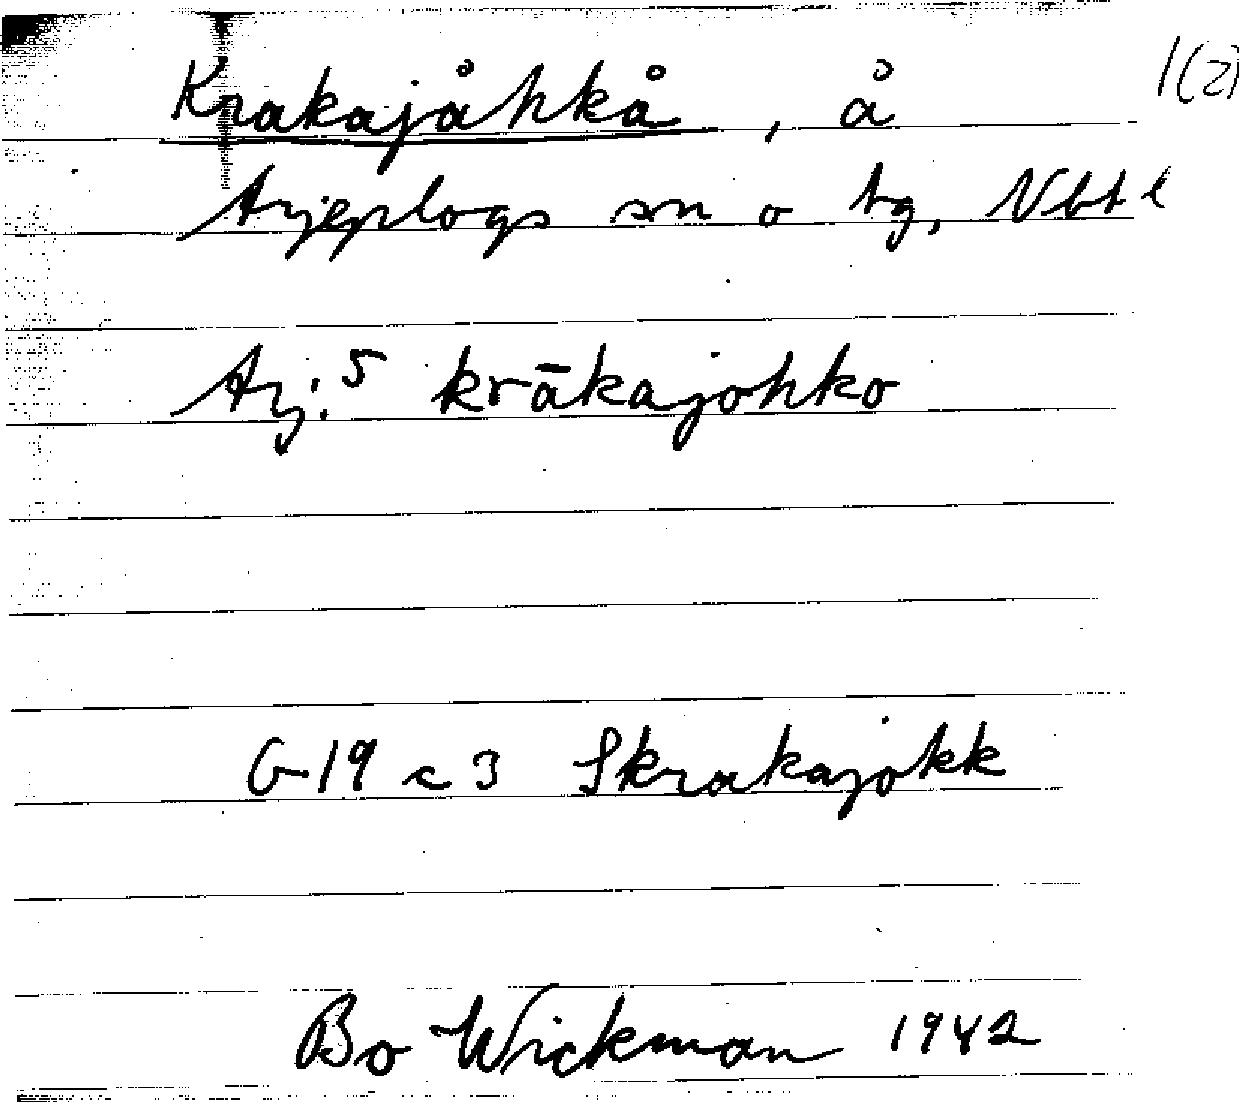 Krakajåhkå, å 1(2)
Arjeplogs sn o tg, Vbtl
Arj. 5 krākajohko
G-19 c 3 Skrakajokk
Bo Wickman 1942